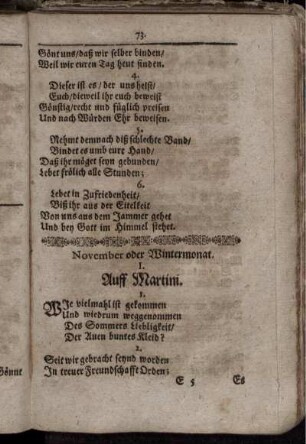 73.
Gönt uns/ daß wir selber binden/
Weil wir euren Tag heut finden.
4.
Dieser ist es/ der uns heist/
Euch/ dieweil ihr euch beweist
Günstig/ recht und füglich preisen
Und nach Würden Ehr beweisen.
5.
Nehmt demnach diß schlechte Band/
Bindet es umb eure Hand/
Daß ihr möget seyn gebunden/
Lebet frölich alle Stunden;
6.
Lebet in Zufriedenheit/
Biß ihr aus der Eitelkeit
Von uns aus dem Jammer gehet
Und bey Gott im Himmel stehet.
November oder Wintermonat.
I.
Auff Martini.
1.
Wie vielmahl ist gekommen
Und wiedrum weggenommen
Des Sommers Liebligkeit/
Der Auen buntes Kleid?
2.
Seit wir gebracht seynd worden
In treuer Freundschafft Orden;
E 5 Es
Gönnt